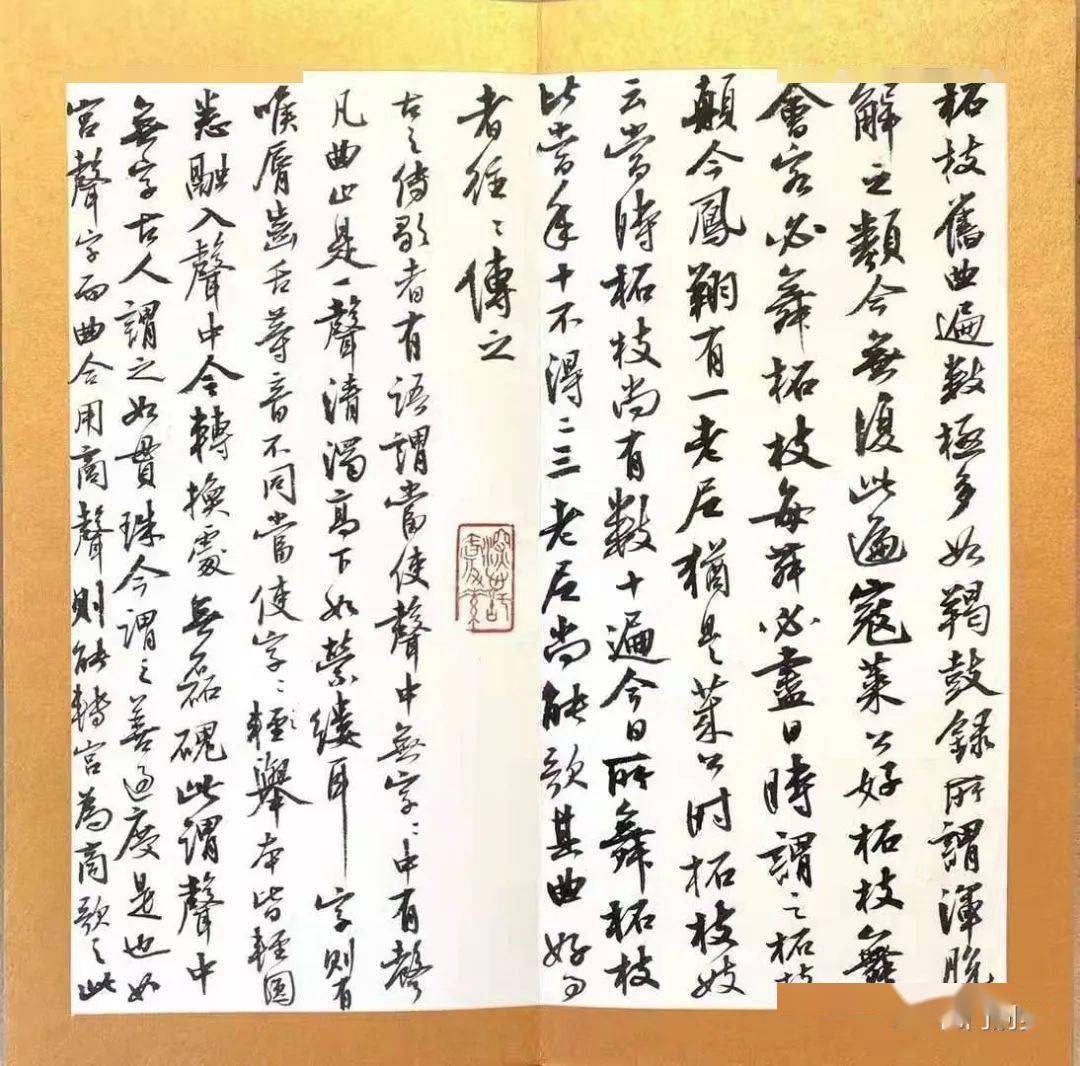 柘枝舊曲遍數極多如羯鼓錄所謂渾脫
解之類今無復此遍寇萊公好柘枝舞
會客必舞柘枝每舞必盡日時謂之柘枝
顛今鳳翔有一老尼猶是萊公时柘枝妓
云當時柘枝尚有數十遍今日所舞柘枝
比當年十不得二三老尼尚能歌其曲好事
者往〻傳之
古之傳歌者有語謂當使聲中無字〻中有聲
凡曲止是一聲清濁高下如縈縷耳字則有
喉脣齒舌等音不同當使字〻輕舉本皆輕圓
悉融入聲中令轉換處無磊磈此謂聲中
無字古人謂之如貫珠今謂之善過度是也如
宮聲字而曲合用商聲則能轉宮為商歌之此